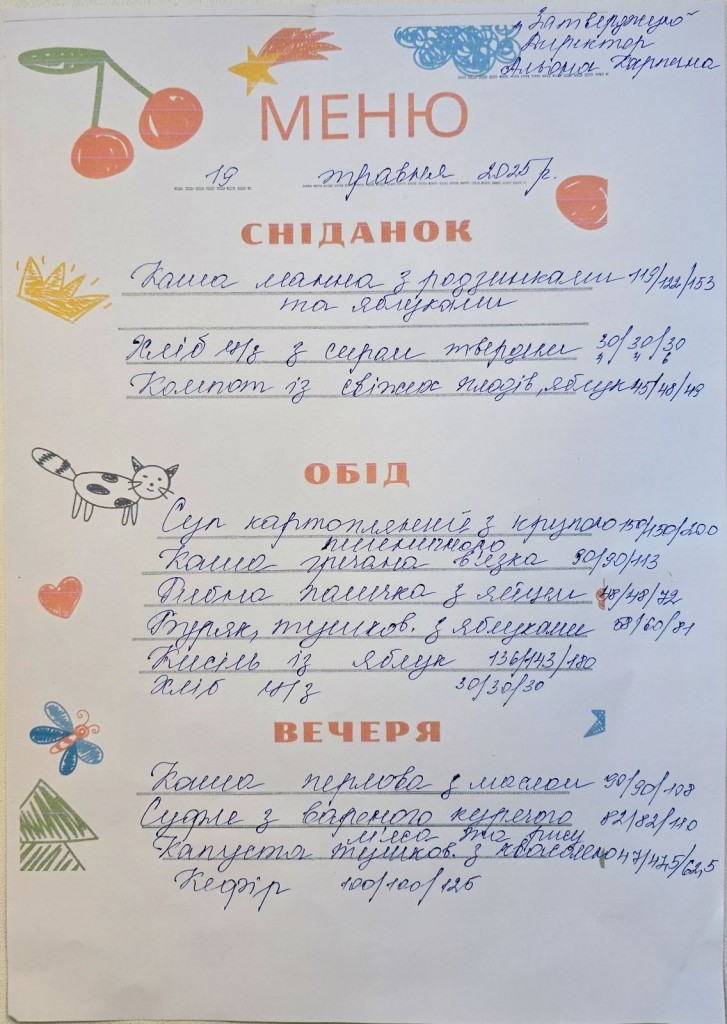 "Затверджую
Директор
Альона Карпечна
МЕНЮ
19 травня 2025 р.
СНІДАНОК
Каша манна з родзинками 119/122/153
та яблуками
Хліб ц/з з сиром твердим 30/30/30
Компот із свіжих плодів, яблук 45/48/49
ОБІД
Суп картопляний з крупою 150/150/200
пшеничного
Каша гречана в'язка 90/90/113
Рибна паличка з яйцем 48/48/72
Буряк, тушков. з яблуками 58/60/81
Кисіль із яблук 136/143/180
Хліб ц/з 30/30/30
ВЕЧЕРЯ
Каша перлова з маслом 90/90/108
Суфле з вареного курячого 82/82/110
м'яса та рису
Капуста тушков. з квасолею 47/47,5/62,5
Кефір 100/100/125